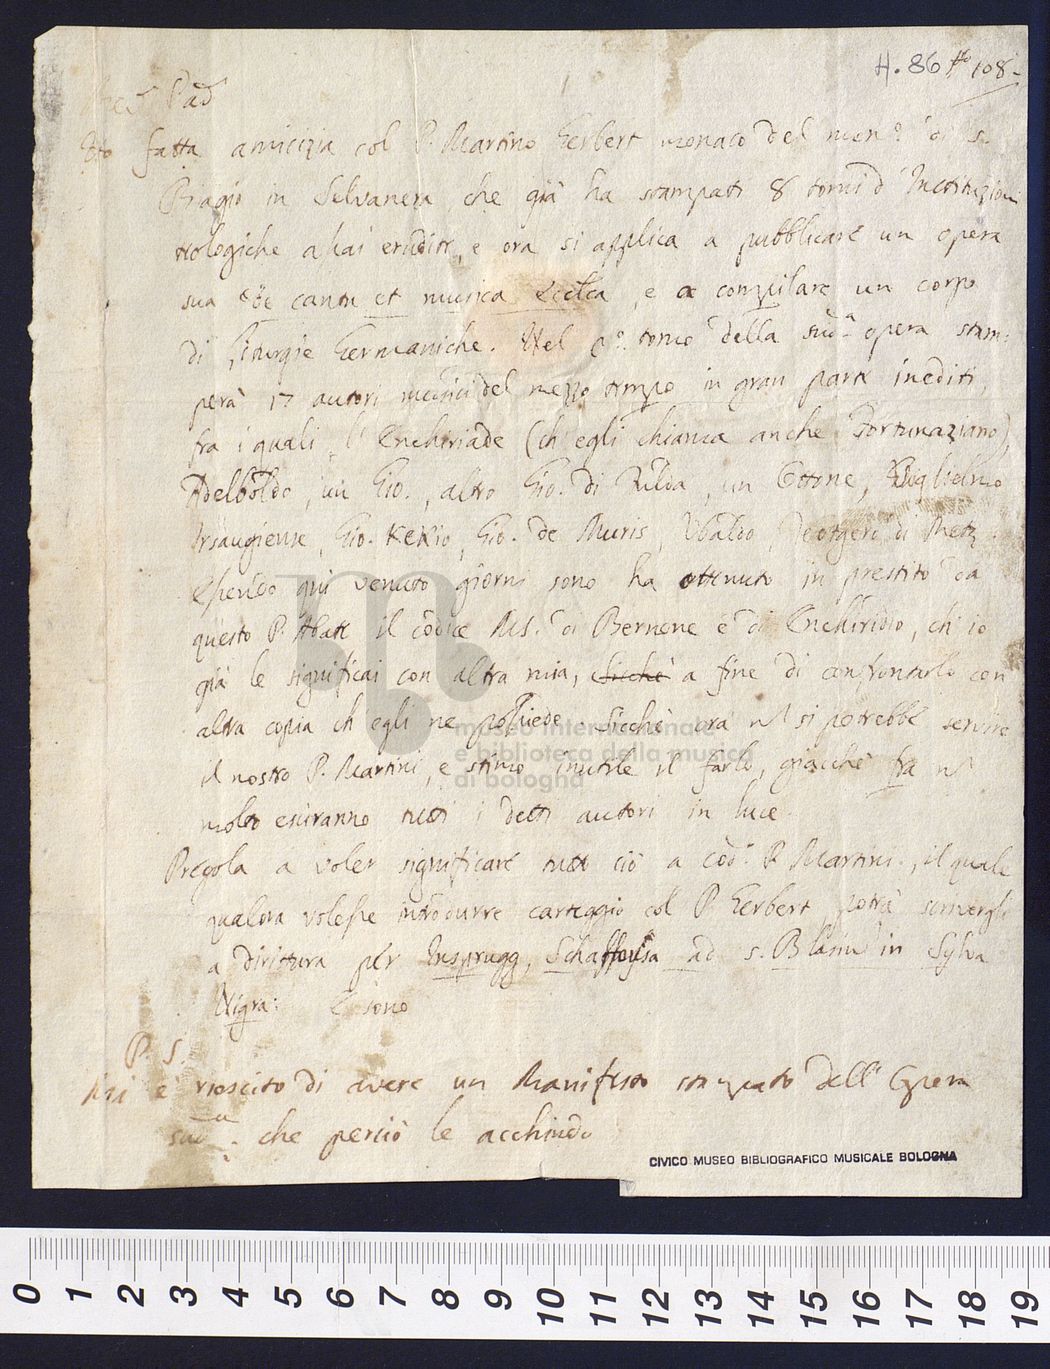 H. 86 108
Pad
Ho fatta amicizia col P. Martino Gerbert monaco del mon.o di S.
Biagio in Selvanera, che già ha stampati 8 tomi d'Instituzioni
teologiche assai erudite, e ora si applica a pubblicare un opera
sua de cantu et musica Eccl.ca, e a compilare un corpo
di liturgie Germaniche. Nel p.o tomo della sud.a opera stam:
perà 17 autori musici del mezzo tempo in gran parte inediti,
fra i quali l'Enchiriade (ch'egli chiama anche Fortunaziano),
Adelboldo, un Gio., altro Gio. di Fulda, un Ottone, Guglielmo
Irsaugiense, Gio. Kekio, Gio. de Muris, Ubaldo, Deotgero di Metz.
Essendo qui venuto giorni sono ha ottenuto in prestito da
questo P. Abate il codice MS. di Bernone e di Enchiridio, ch'io
già le significai con altra mia, Sicchè a fine di confrontarlo con
altra copia ch'egli ne possiede. Sicchè ora n si potrebbe servire
il nostro P. Martini, e stimo inutile il farlo, giacchè fra n
molto esciranno tutti i detti autori in luce.
Pregola a voler significare tutto ciò a cod.o P. Martini, il quale
qualora volesse introdurre carteggio col P. Gerbert potrà scrivergli
a dirittura per Insprugg, Schaffusa ad S. Blasiu in Sylva
Nigra: E sono
P. S.
Mi è riescito di avere un Manifesto stampato dell'Opera
sud.a che perciò le acchiudo
CIVICO MUSEO BIBLIOGRAFICO MUSICALE BOLOGNA
museo internazionale
e biblioteca della musica
di bologna
0 1 2 3 4 5 6 7 8 9 10 11 12 13 14 15 16 17 18 19